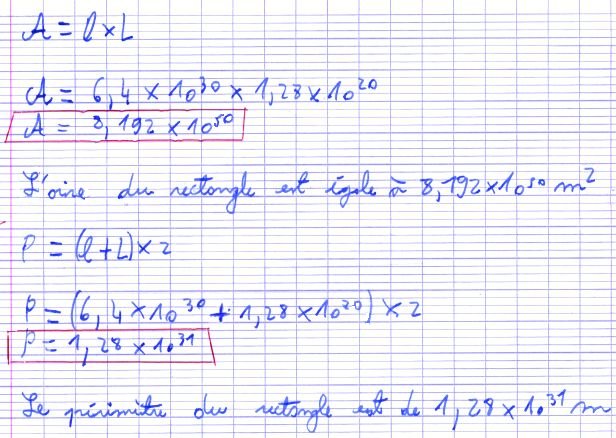 A = l × L
A = 6,4 × 10³⁰ × 1,28 × 10²⁰
A = 8,192 × 10⁵⁰
L'aire du rectangle est égale à 8,192×10⁵⁰ m²
P = (l + L) × 2
P = (6,4 × 10³⁰ + 1,28 × 10²⁰) × 2
P = 1,28 × 10³¹
Le périmètre du rectangle est de 1,28 × 10³¹ m